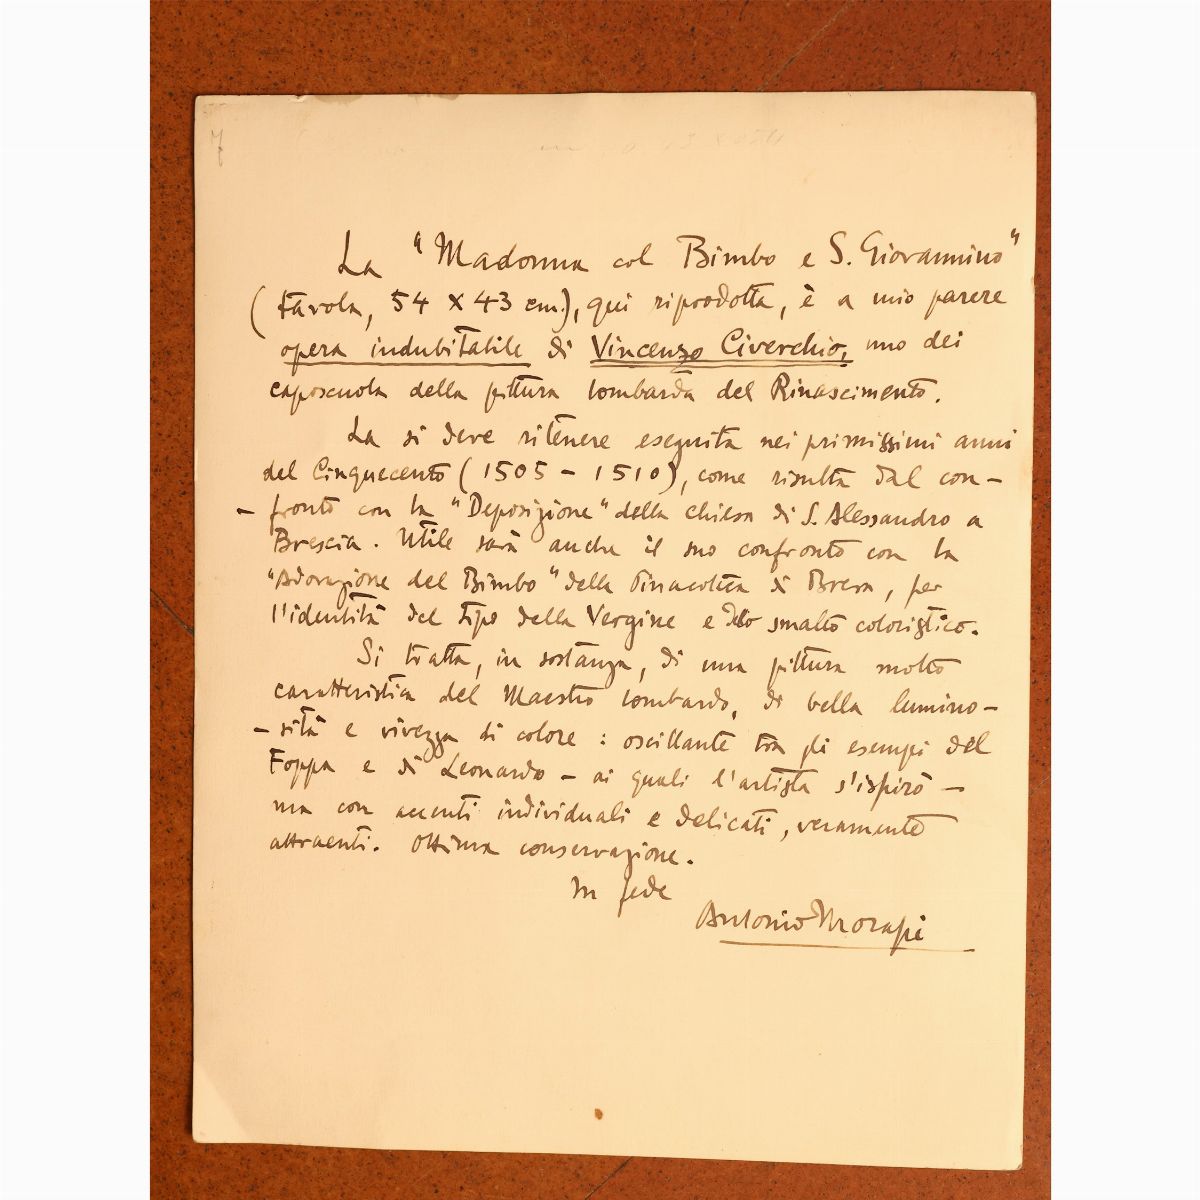 7
La "Madonna col Bimbo e S. Giovannino"
(tavola, 54 x 43 cm.), qui riprodotta, è a mio parere
opera indubitabile di Vincenzo Civerchio, uno dei
caposcuola della pittura lombarda del Rinascimento.
La si deve ritenere eseguita nei primissimi anni
del Cinquecento (1505 - 1510), come risulta dal con-
- fronto con la "Deposizione" della chiesa di S. Alessandro a
Brescia. Utile sarà anche il suo confronto con la
"Adorazione del Bimbo" della Pinacoteca di Brera, per
l'identità del tipo della Vergine e dello smalto coloristico.
Si tratta, in sostanza, di una pittura molto
caratteristica del Maestro lombardo, di bella lumino-
- sità e vivezza di colore : oscillante tra gli esempi del
Foppa e di Leonardo - ai quali l'artista s'ispirò -
ma con accenti individuali e delicati, veramente
attraenti. Ottima conservazione.
In fede
Antonio Morassi